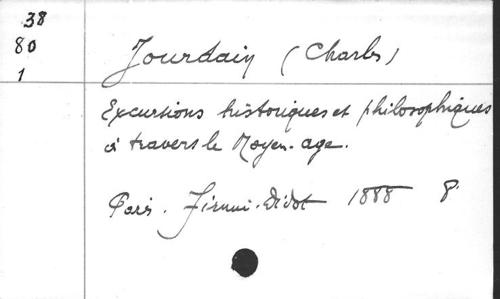 38
80
1
Jourdain (Charles)
Excursions historiques et philosophiques
à travers le Moyen-age.
Paris. Firmin-Didot 1888 8°